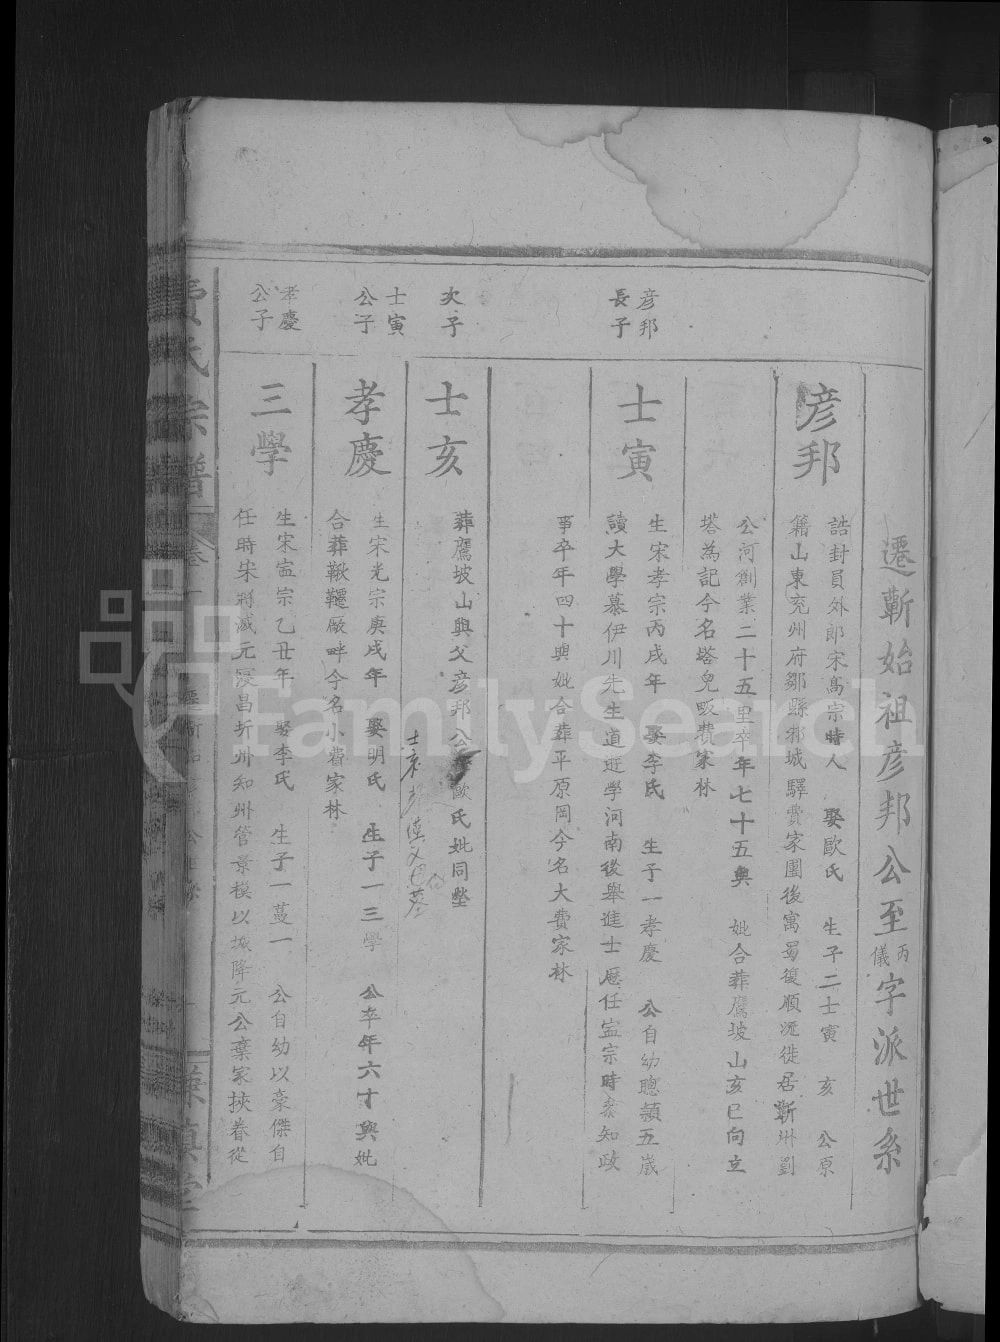 遷蘄始祖彦邦公至丙儀字派世系
彦邦
誥封員外郎宋高宗時人 娶歐氏 生子二士寅 亥 公原
籍山東兖州府鄒縣邾城驛費家團後寓蜀復順流徙居蘄州劉
公河創業二十五里卒年七十五與 妣合葬鷹坡山亥巳向立
塔為記今名塔兒畈費家林
彦邦
長子
士寅
生宋孝宗丙戌年 娶李氏 生子一孝慶 公自幼聰頴五嵗
讀大學慕伊川先生道遊學河南後舉進士歷任寧宗時叅知政
事卒年四十與妣合葬平原岡今名大費家林
次子
士亥
葬鷹坡山與父彦邦公 歐氏妣同塋
孝慶
士寅
公子
生宋光宗庚戌年 娶明氏 生子一三學 公卒年六十與妣
合葬鞦韆廠畔今名小費家林
三學
孝慶
公子
生宋寧宗乙丑年 娶李氏 生子一萲一 公自幼以豪傑自
任時宋將滅元寖昌折州知州管景模以城降元公棄家挾眷從
費氏宗譜
FamilySearch